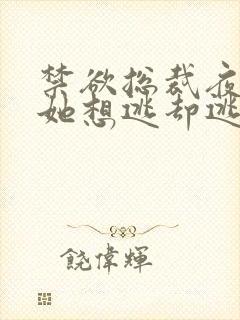 禁欲总裁夜
她想逃却逃
饶伟辉